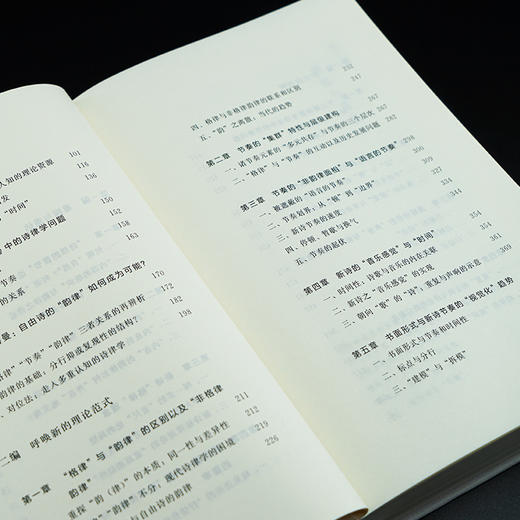 101
人认知的理论资源
116
发
136
“时间”
150
中的诗律学问题
153
节奏
163
的关系
170
曼：自由诗的“韵律”如何成为可能？
172
“节奏”“韵律”三者关系的再辨析
182
韵律的基础：分行抑或复现性的结构？
198
、对位法：走入多重认知的诗律学
二编 呼唤新的理论范式
211
第一章 “格律”与“韵律”的区别以及“非格律
韵律”
212
重探“韵（律）”的本质：同一性与差异性
219
“韵律”不分：现代诗律学的困境
226
与自由诗的韵律
232
四、格律与非格律韵律的联系和区别
242
五、“韵”之离散：当代的趋势
247
第二章 节奏的“集群”特性与层级建构
247
一、诸节奏元素的“多元共存”与节奏的三个层次
267
二、“格律”与“节奏”的互动以及历史发展问题
298
第三章 节奏的“非韵律面相”与“语言的节奏”
300
一、被遮蔽的“语言的节奏”
309
二、节奏划界：从“顿”到“边界”
三、新诗节奏的速度
四、停顿、暂歇与换气
329
344
五、节奏的起伏
354
第四章 新诗的“音乐感觉”与“时间”
354
一、时间性、诗歌与音乐的内在关联
361
二、新诗之“音乐感觉”的实现
369
三、朝向“歌”的“诗”：重复与共鸣的示意
第五章 书面形式与新诗节奏的“视觉化”趋势
一、书面形式与节奏和时间性
二、标点与分行
三、“建模”与“拆模”